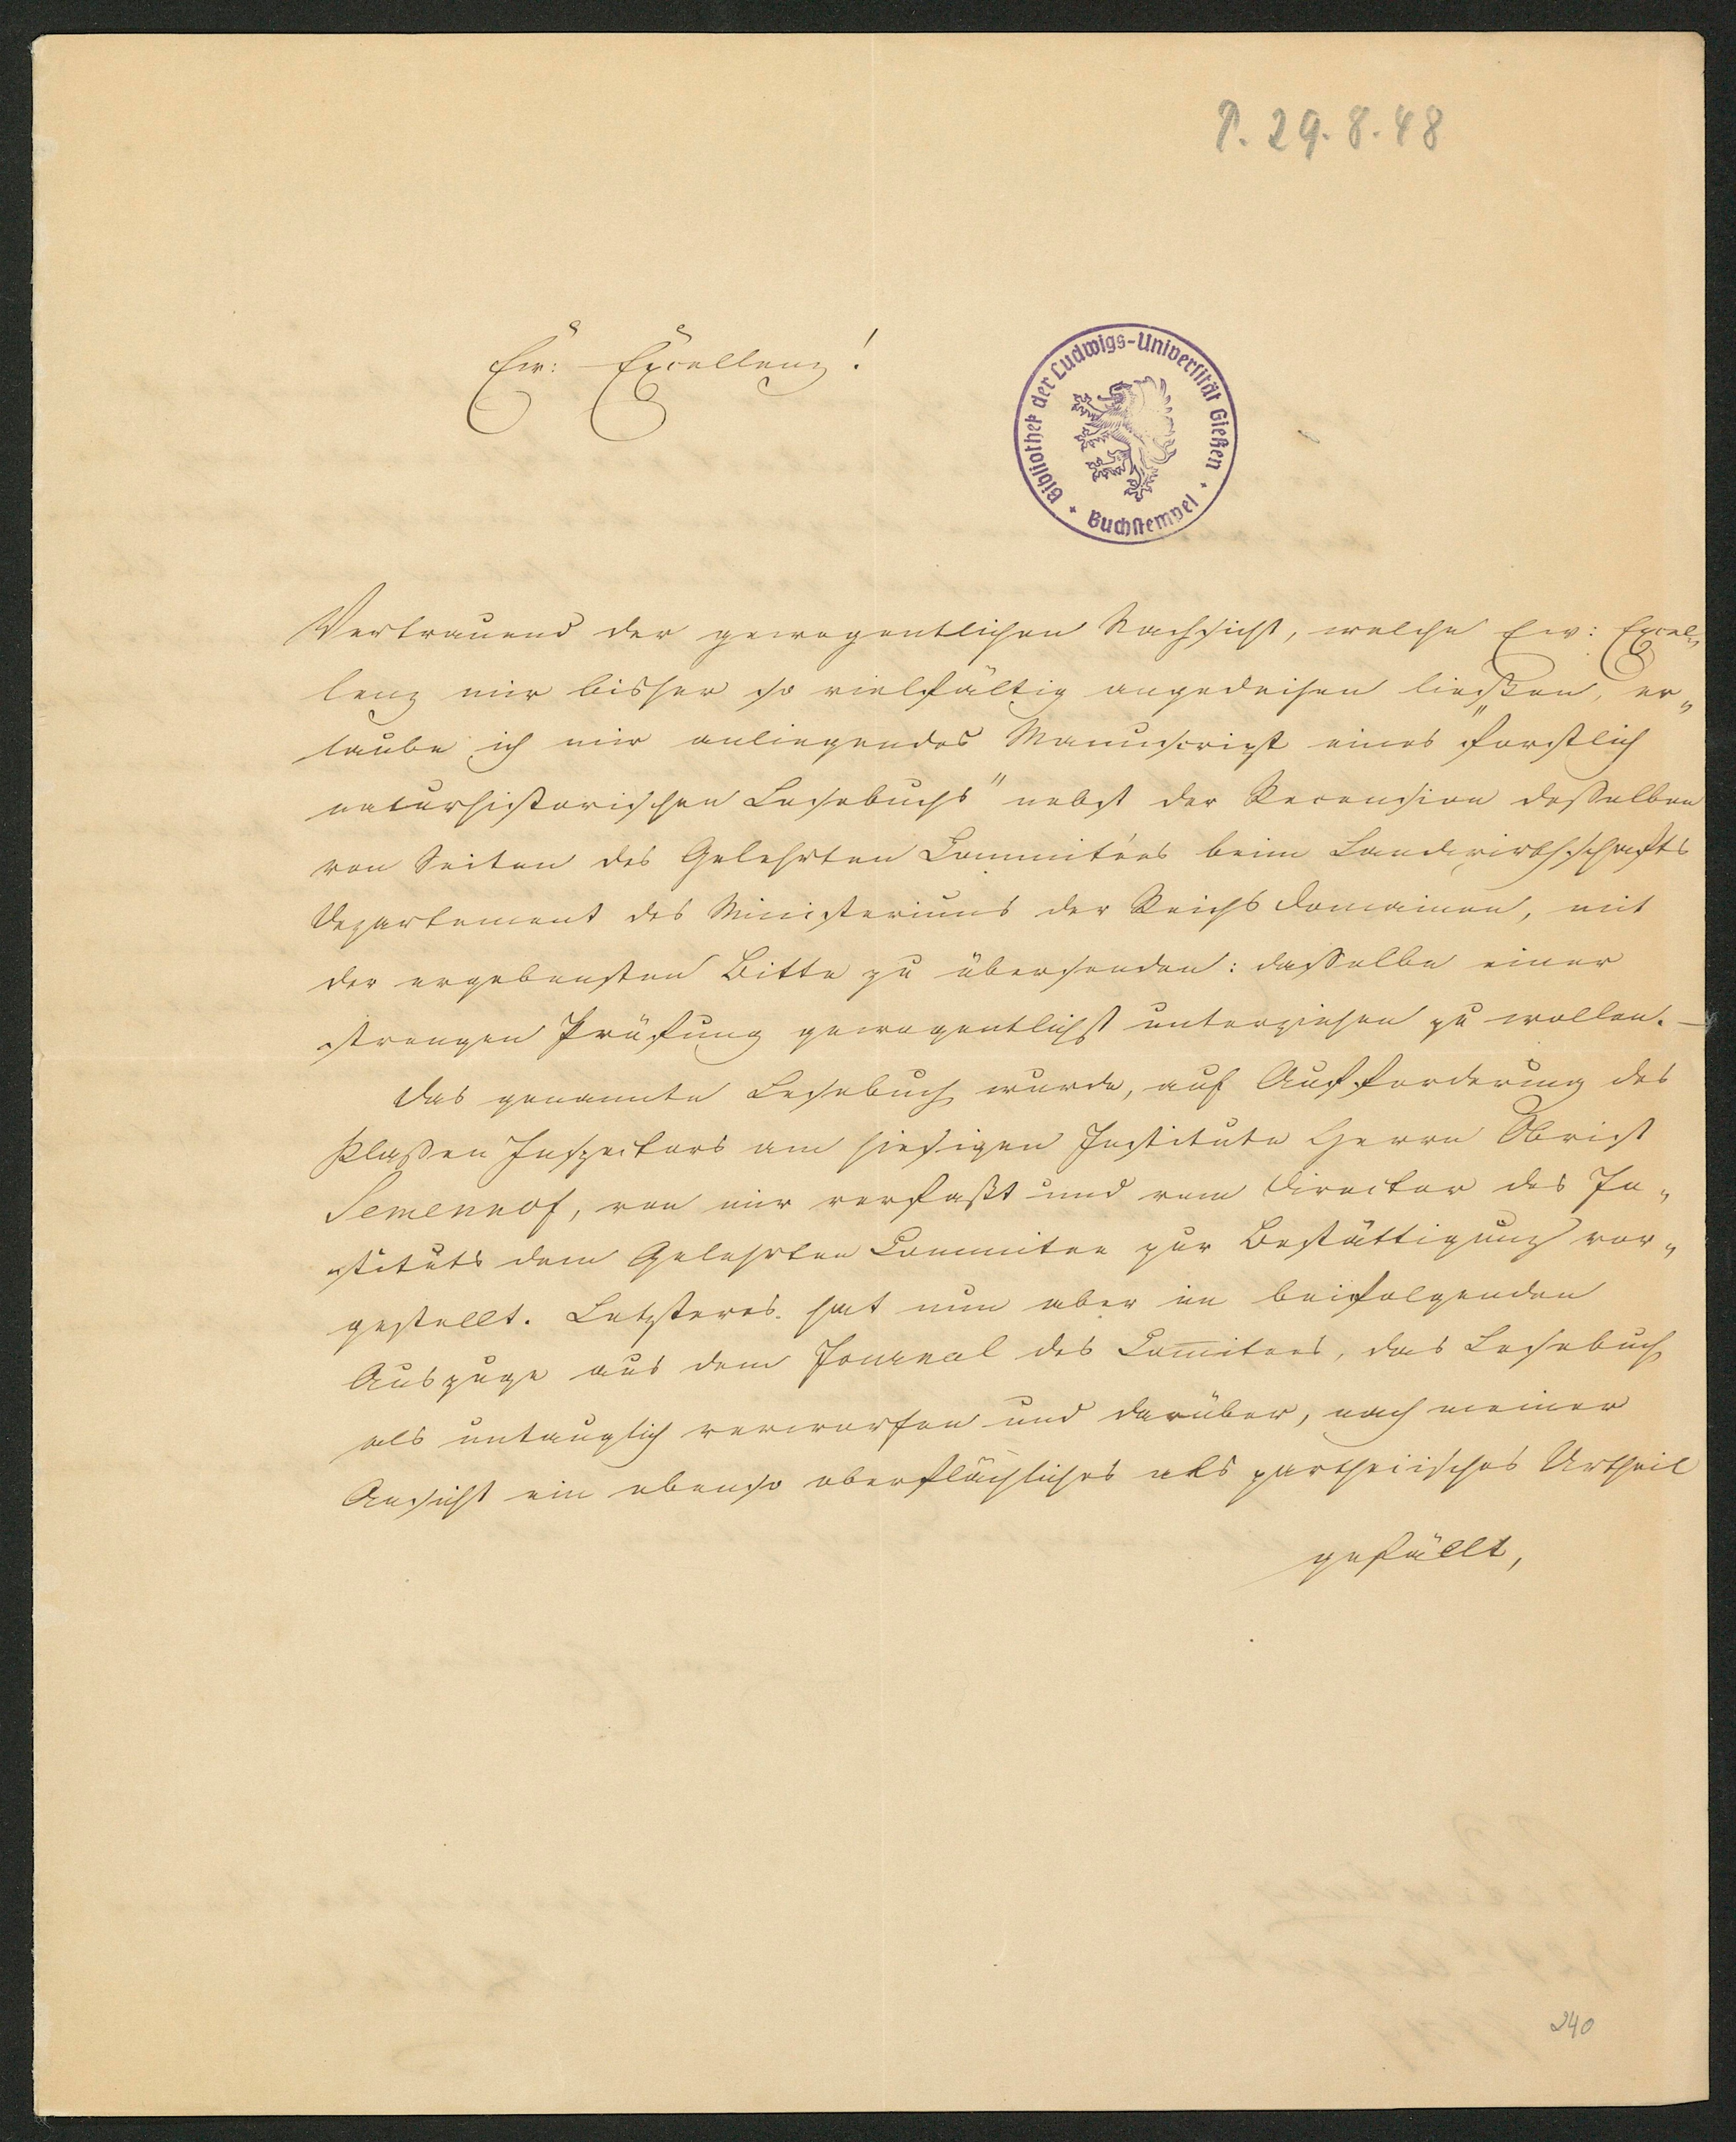 P. 29.8.48
Ew: Excellenz!
Bibliothek der Ludwigs-Universität Gießen
Buchstempel
Vertrauend der gewogentlichen Nachsicht, welche Ew: Excel„
lenz mir bisher so vielfältig angedeihen ließen, er„
laube ich mir anliegendes Manuscript eines "forstlich
naturhistorischen Lesebuchs" nebst der Recension desselben
von Seiten des Gelehrten Committées beim Landwirthschafts
Departement des Ministeriums der Reichsdomainen, mit
der ergebensten Bitte zu übersenden: dasselbe einer
strengen Prüfung gewogentlichst unterziehen zu wollen. —
Das genannte Lesebuch wurde, auf Aufforderung des
Klaßen Inspectors am hiesigen Institute Herrn Obrist
Semennof, von mir verfaßt und vom Director des In„
stituts dem Gelehrten Committee zur Bestättigung vor„
gestellt. Letzteres hat nun aber im beifolgenden
Auszuge aus dem Journal des Com̅itees, das Lesebuch
als untauglich verworfen und darüber, nach meiner
Ansicht ein ebenso oberflächliches als partheiisches Urtheil
gefällt,
240